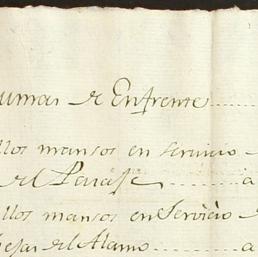 umas de Enfrente
llos mansos en servicio
del Parase a
llos mansos en Servicio
del Alamo a